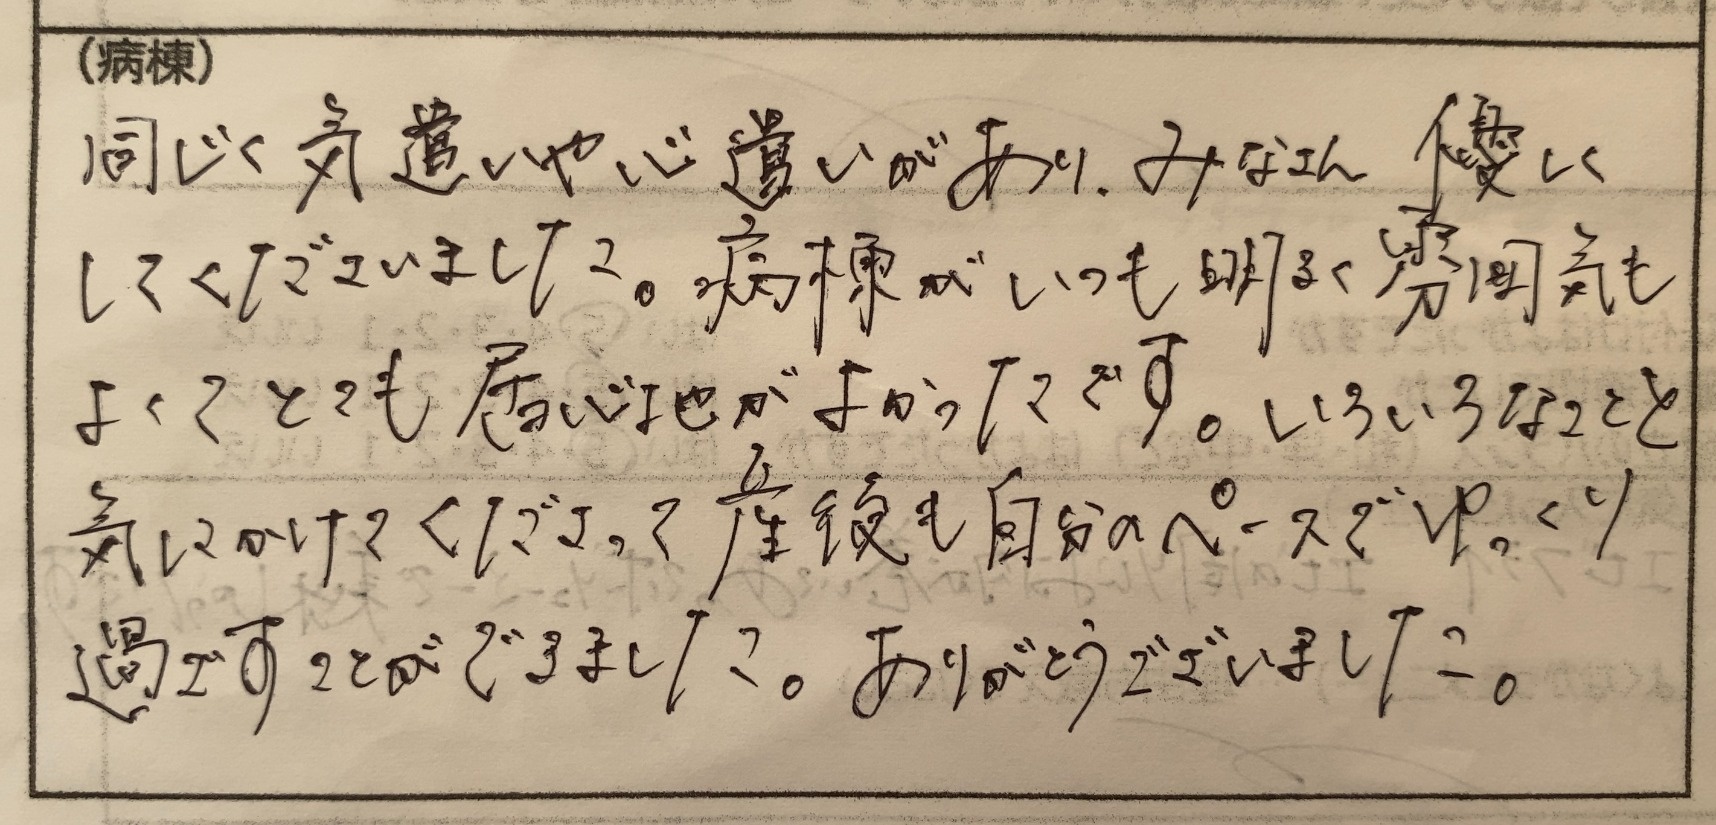 (病棟)
同じく気遣いや心遣いがあり、みなさん優しく
してくださいました。病棟がいつも明るく雰囲気も
よくてとても居心地がよかったです。いろいろなこと
気にかけてくださって産後も自分のペースでゆっくり
過ごすことができました。ありがとうございました。